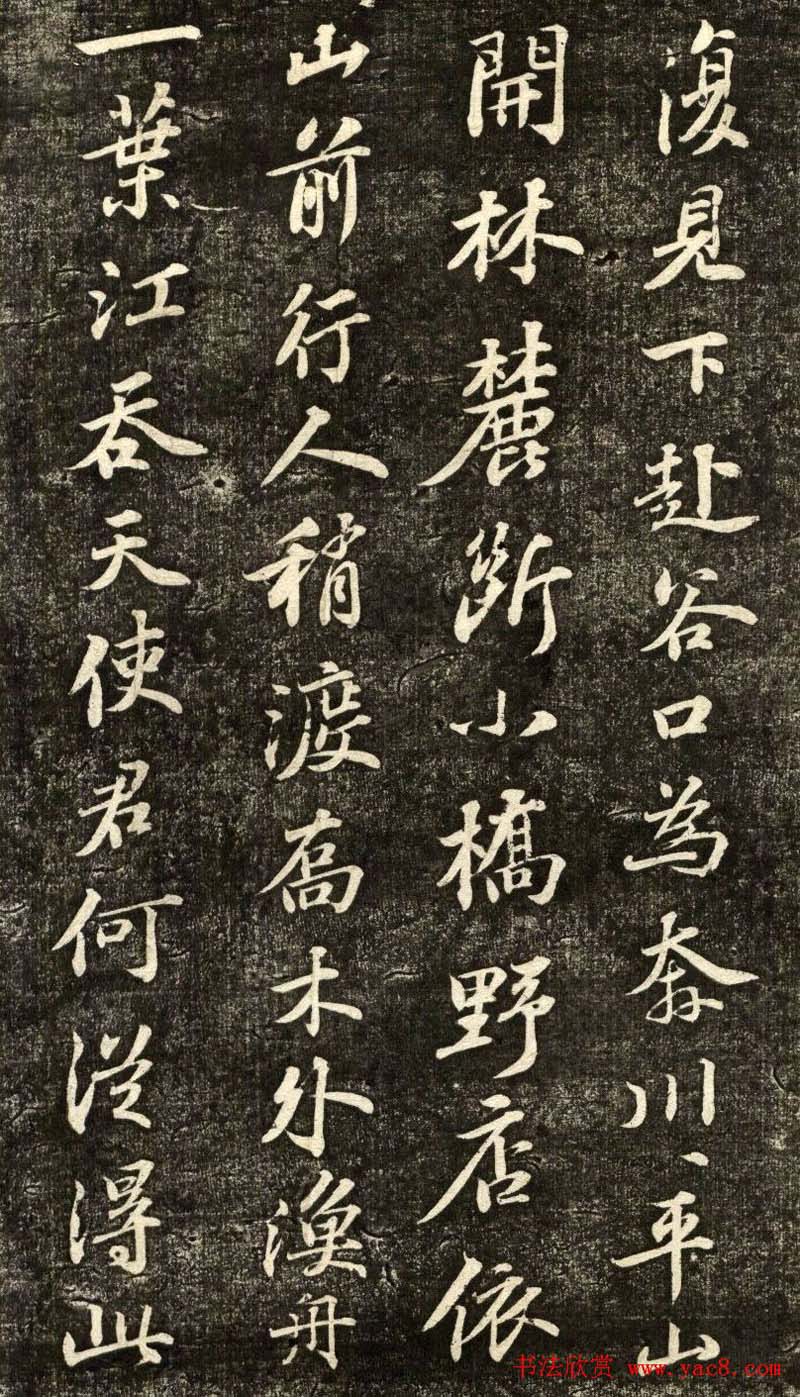 復見下赴谷口為奔川〻平山
開林麓斷小橋野店依
山前行人稍渡喬木外漁舟
一葉江吞天使君何從得此
书法欣赏 www.yac8.com